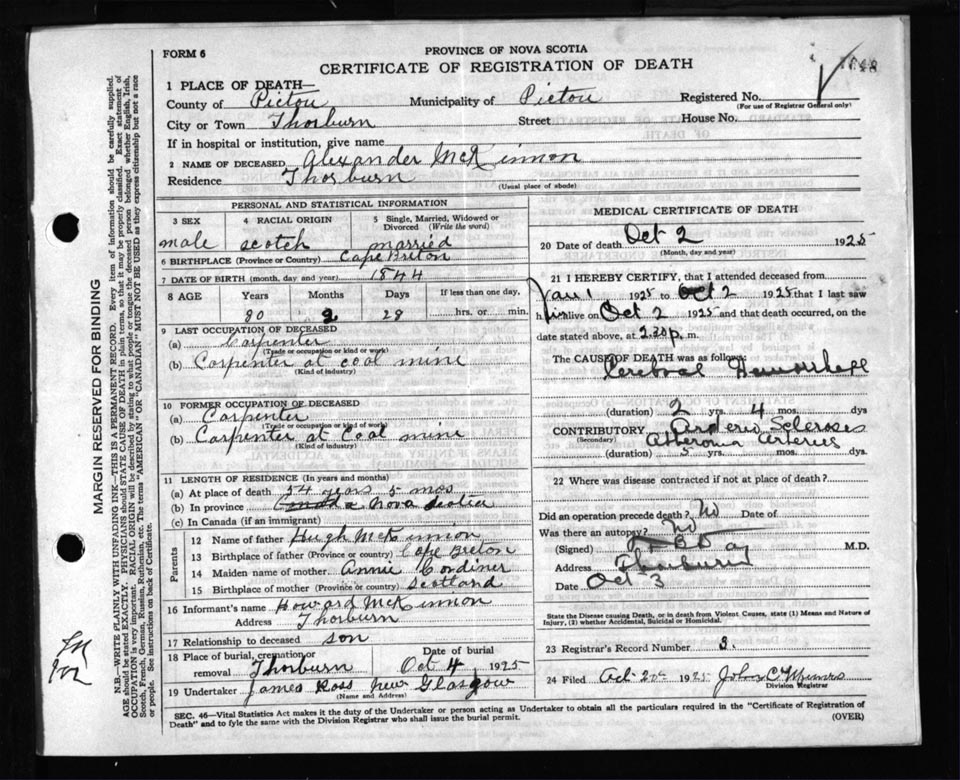 FORM 6
PROVINCE OF NOVA SCOTIA
CERTIFICATE OF REGISTRATION OF DEATH
1 PLACE OF DEATH—
County of Pictou Municipality of Pictou Registered No.
(For use of Registrar General only)
City or Town Thorburn Street House No.
If in hospital or institution, give name
2 NAME OF DECEASED Alexander McKinnon
Residence Thorburn
(Usual place of abode)
PERSONAL AND STATISTICAL INFORMATION
3 SEX 4 RACIAL ORIGIN 5 Single, Married, Widowed or Divorced (Write the word)
male scotch married
6 BIRTHPLACE (Province or Country) Cape Breton
7 DATE OF BIRTH (month, day and year) 1844
8 AGE Years Months Days If less than one day,
80 2 28 hrs. or min.
9 LAST OCCUPATION OF DECEASED
(a) Carpenter
(Trade or occupation or kind of work)
(b) Carpenter at coal mine
(Kind of industry)
10 FORMER OCCUPATION OF DECEASED
(a) Carpenter
(Trade or occupation or kind of work)
(b) Carpenter at Coal mine
(Kind of industry)
11 LENGTH OF RESIDENCE (In years and months)
(a) At place of death 54 years 5 mos
(b) In province Canada Nova Scotia
(c) In Canada (if an immigrant)
Parents
12 Name of father Hugh McKinnion
13 Birthplace of father (Province or country) Cape Breton
14 Maiden name of mother Annie Cordiner
15 Birthplace of mother (Province or country) Scotland
16 Informant's name Howard McKinnon
Address Thorburn
17 Relationship to deceased son
18 Place of burial, cremation or removal Thorburn Date of burial Oct 4 1925
19 Undertaker James Ross New Glasgow
(Name and Address)
MEDICAL CERTIFICATE OF DEATH
20 Date of death Oct 2 1925
(Month, day and year)
21 I HEREBY CERTIFY, that I attended deceased from
Jan 1 1925 to Oct 2 1925 that I last saw
him alive on Oct 2 1925 and that death occurred, on
date stated above, at 2.30 p. m.
The CAUSE OF DEATH was as follows:
Cerebral Hemorrhage
(duration) 2 yrs. 4 mos. dys
CONTRIBUTORY Arterio Scleroses
(Secondary) Atheroma Arteries
(duration) 5 yrs. mos. dys
22 Where was disease contracted if not at place of death?
Did an operation precede death? No Date of
Was there an autopsy? No
(Signed) M.D.
Address Thorburn
Date Oct 3
State the Disease causing Death, or in death from Violent Causes, state (1) Means and Nature of Injury, (2) whether Accidental, Suicidal or Homicidal.
23 Registrar's Record Number 3.
24 Filed Oct 20th 1925
SEC. 46—Vital Statistics Act makes it the duty of the Undertaker or person acting as Undertaker to obtain all the particulars required in the "Certificate of Registration of
Death" and to fyle the same with the Division Registrar who shall issue the burial permit. (OVER)
MARGIN RESERVED FOR BINDING
N.B.—WRITE PLAINLY WITH UNFADING INK—THIS IS A PERMANENT RECORD. Every item of information should be carefully supplied.
AGE should be stated EXACTLY. PHYSICIANS should STATE CAUSE OF DEATH in plain terms, so that it may be properly classified. Exact statement of
OCCUPATION is very important. RACIAL ORIGIN will be described by stating to what people or tongue the deceased person belonged whether English, Irish,
Scotch, French, German, Russian, Ruthenian, etc. The terms "AMERICAN" or "CANADIAN" MUST NOT BE USED as they express citizenship but not a race
or people. See instructions on back of Certificate.